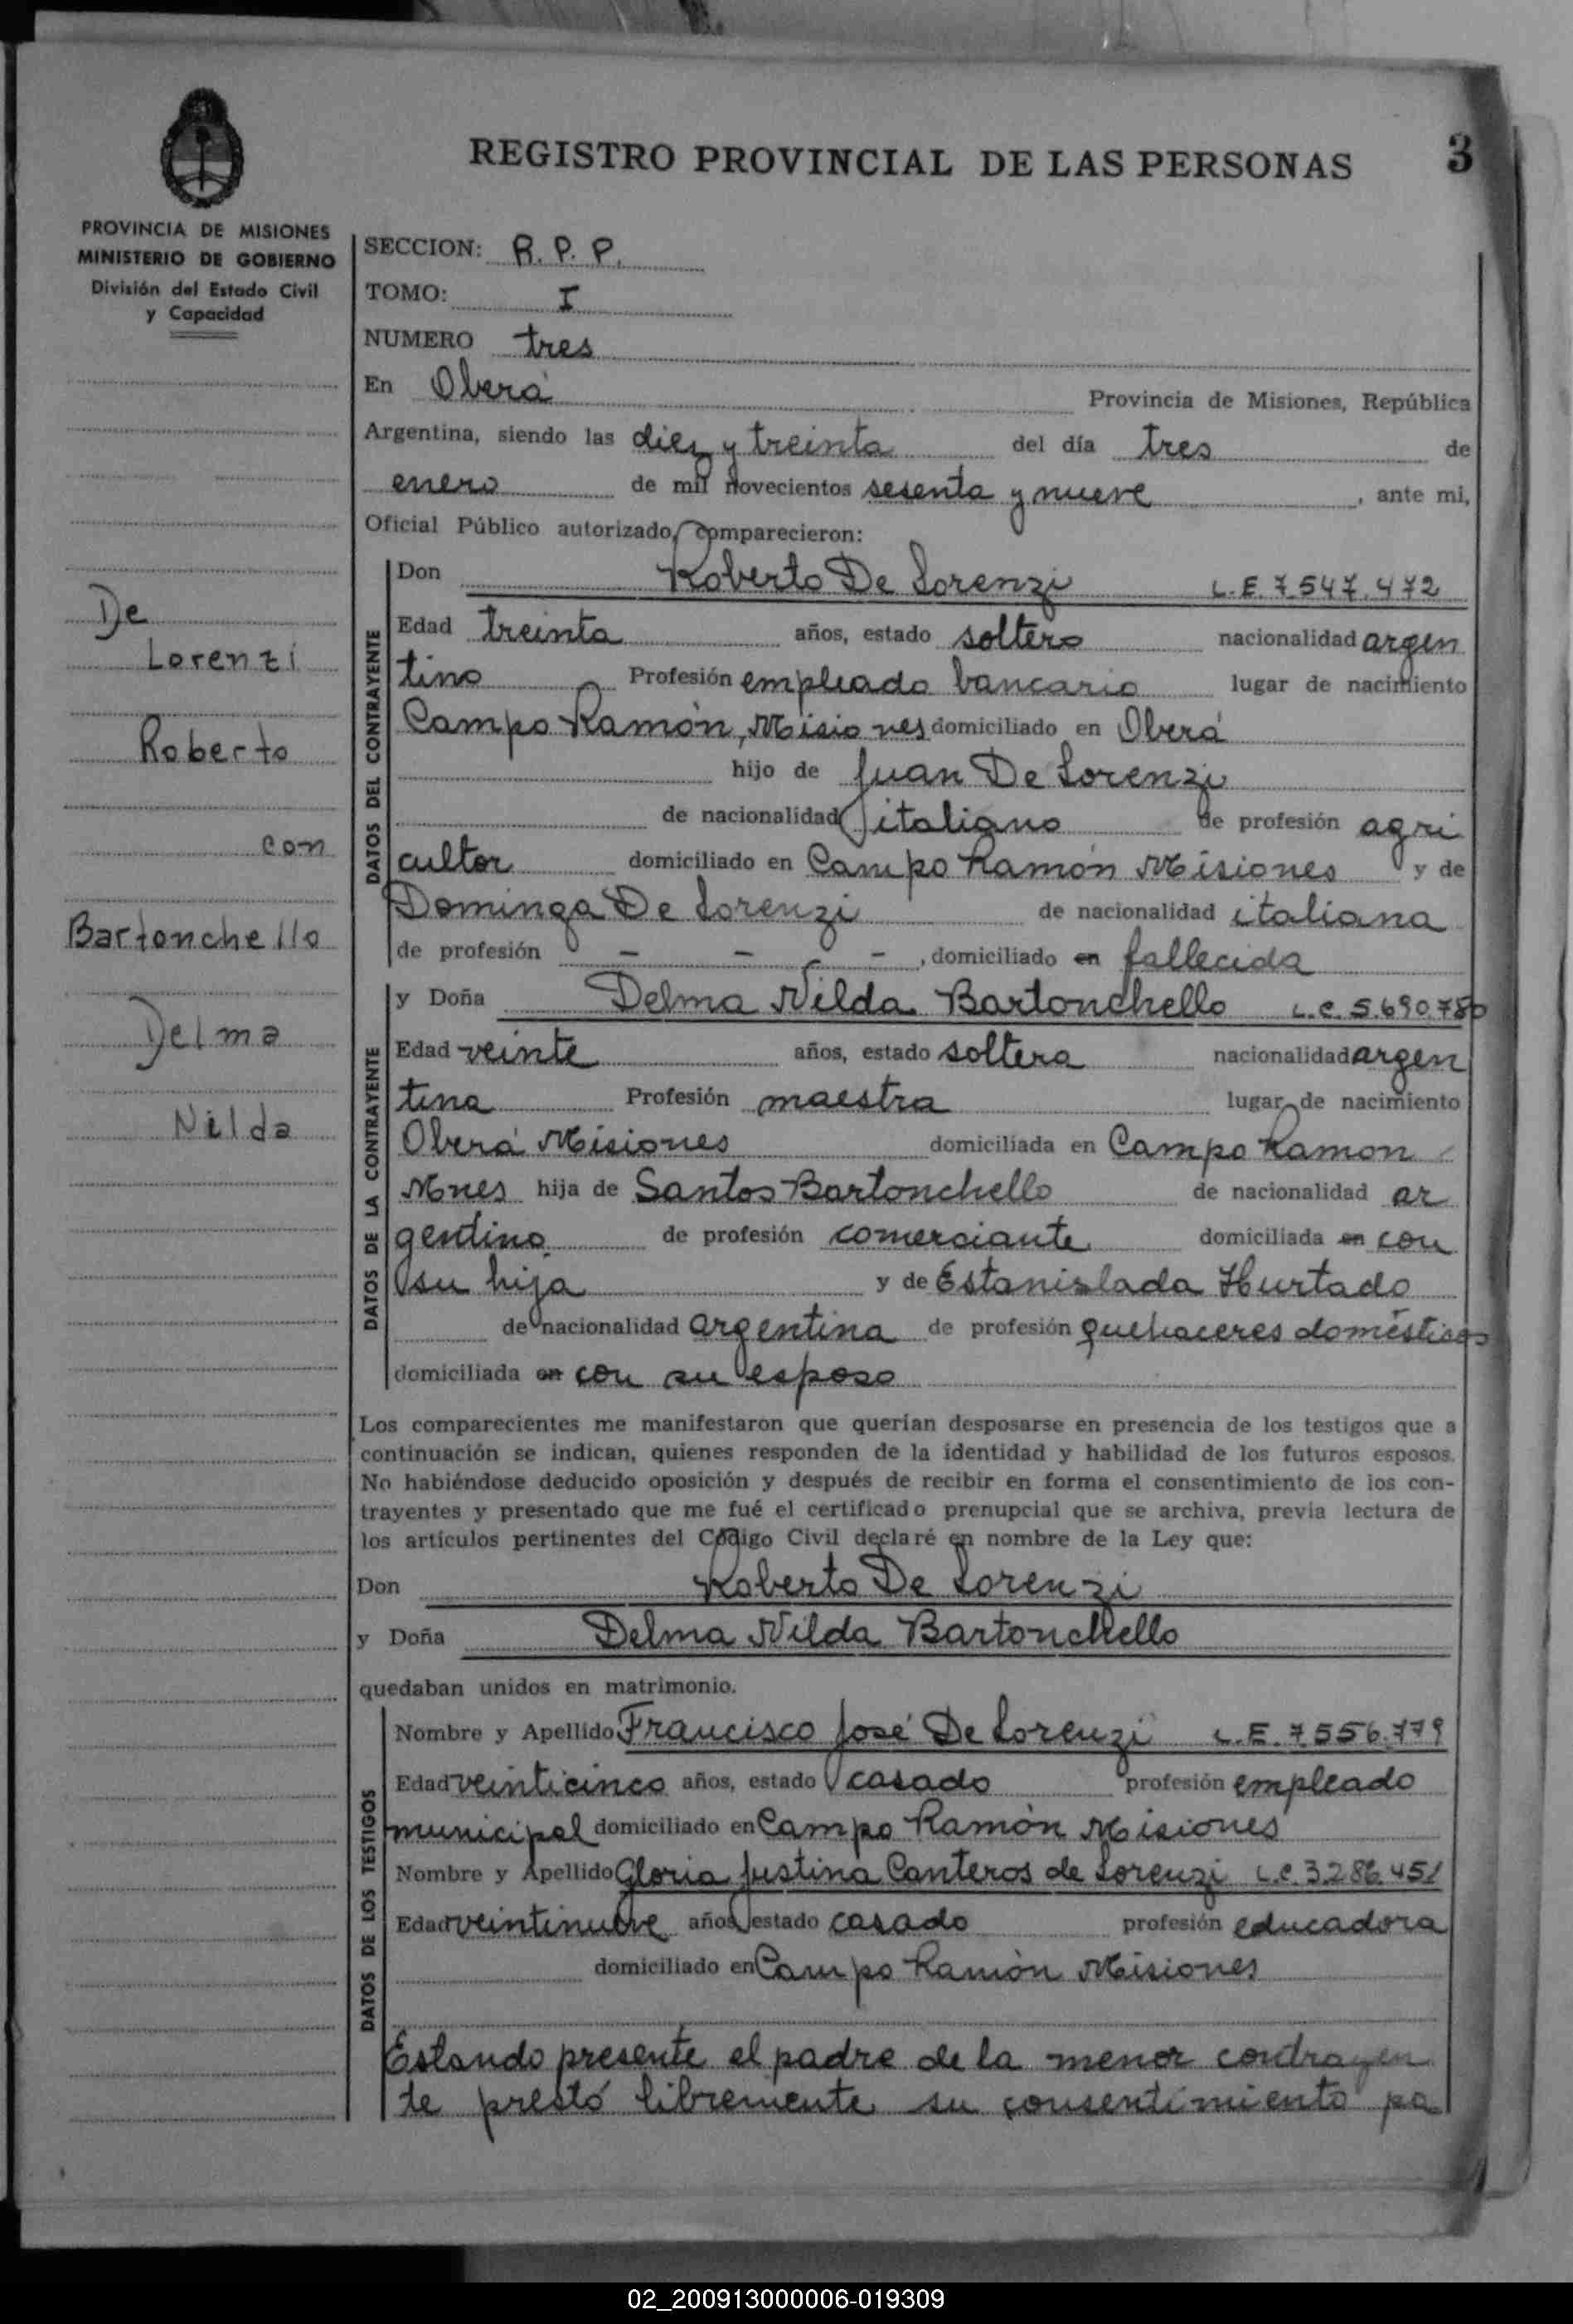 REGISTRO PROVINCIAL DE LAS PERSONAS
3
PROVINCIA DE MISIONES
MINISTERIO DE GOBIERNO
División del Estado Civil
y Capacidad
De
Lorenzi
Roberto
con
Bartonchello
Delma
Nilda
SECCION: R. P. P.
TOMO: I
NUMERO tres
En Oberá Provincia de Misiones, República
Argentina, siendo las diez y treinta del día tres de
enero de mil novecientos sesenta y nueve, ante mi,
Oficial Público autorizado, comparecieron:
DATOS DEL CONTRAYENTE
Don Roberto De Lorenzi L.E. 7.547.472
Edad treinta años, estado soltero nacionalidad argen
tino Profesión empleado bancario lugar de nacimiento
Campo Ramón, Misiones domiciliado en Oberá
hijo de Juan De Lorenzi
de nacionalidad italiano de profesión agri
cultor domiciliado en Campo Ramón Misiones y de
Dominga De Lorenzi de nacionalidad italiana
de profesión - - -, domiciliado en fallecida
DATOS DE LA CONTRAYENTE
y Doña Delma Nilda Bartonchello L.C. 5.690.780
Edad veinte años, estado soltera nacionalidad argen
tina Profesión maestra lugar de nacimiento
Oberá Misiones domiciliada en Campo Ramon
Mnes hija de Santos Bartonchello de nacionalidad ar
gentino de profesión comerciante domiciliada en con
su hija y de Estanislada Hurtado
de nacionalidad argentina de profesión quehaceres domésticos
domiciliada en con su esposo
Los comparecientes me manifestaron que querían desposarse en presencia de los testigos que a
continuación se indican, quienes responden de la identidad y habilidad de los futuros esposos.
No habiéndose deducido oposición y después de recibir en forma el consentimiento de los con-
trayentes y presentado que me fué el certificado prenupcial que se archiva, previa lectura de
los artículos pertinentes del Código Civil declaré en nombre de la Ley que:
Don Roberto De Lorenzi
y Doña Delma Nilda Bartonchello
quedaban unidos en matrimonio.
DATOS DE LOS TESTIGOS
Nombre y Apellido Francisco José De Lorenzi L.E. 7.556.779
Edad veinticinco años, estado casado profesión empleado
municipal domiciliado en Campo Ramón Misiones
Nombre y Apellido Gloria Justina Canteros de Lorenzi L.C. 3.286.451
Edad veintinueve años, estado casado profesión educadora
domiciliado en Campo Ramón Misiones
Estando presente el padre de la menor contrayen
te prestó libremente su consentimiento pa
02_200913000006-019309